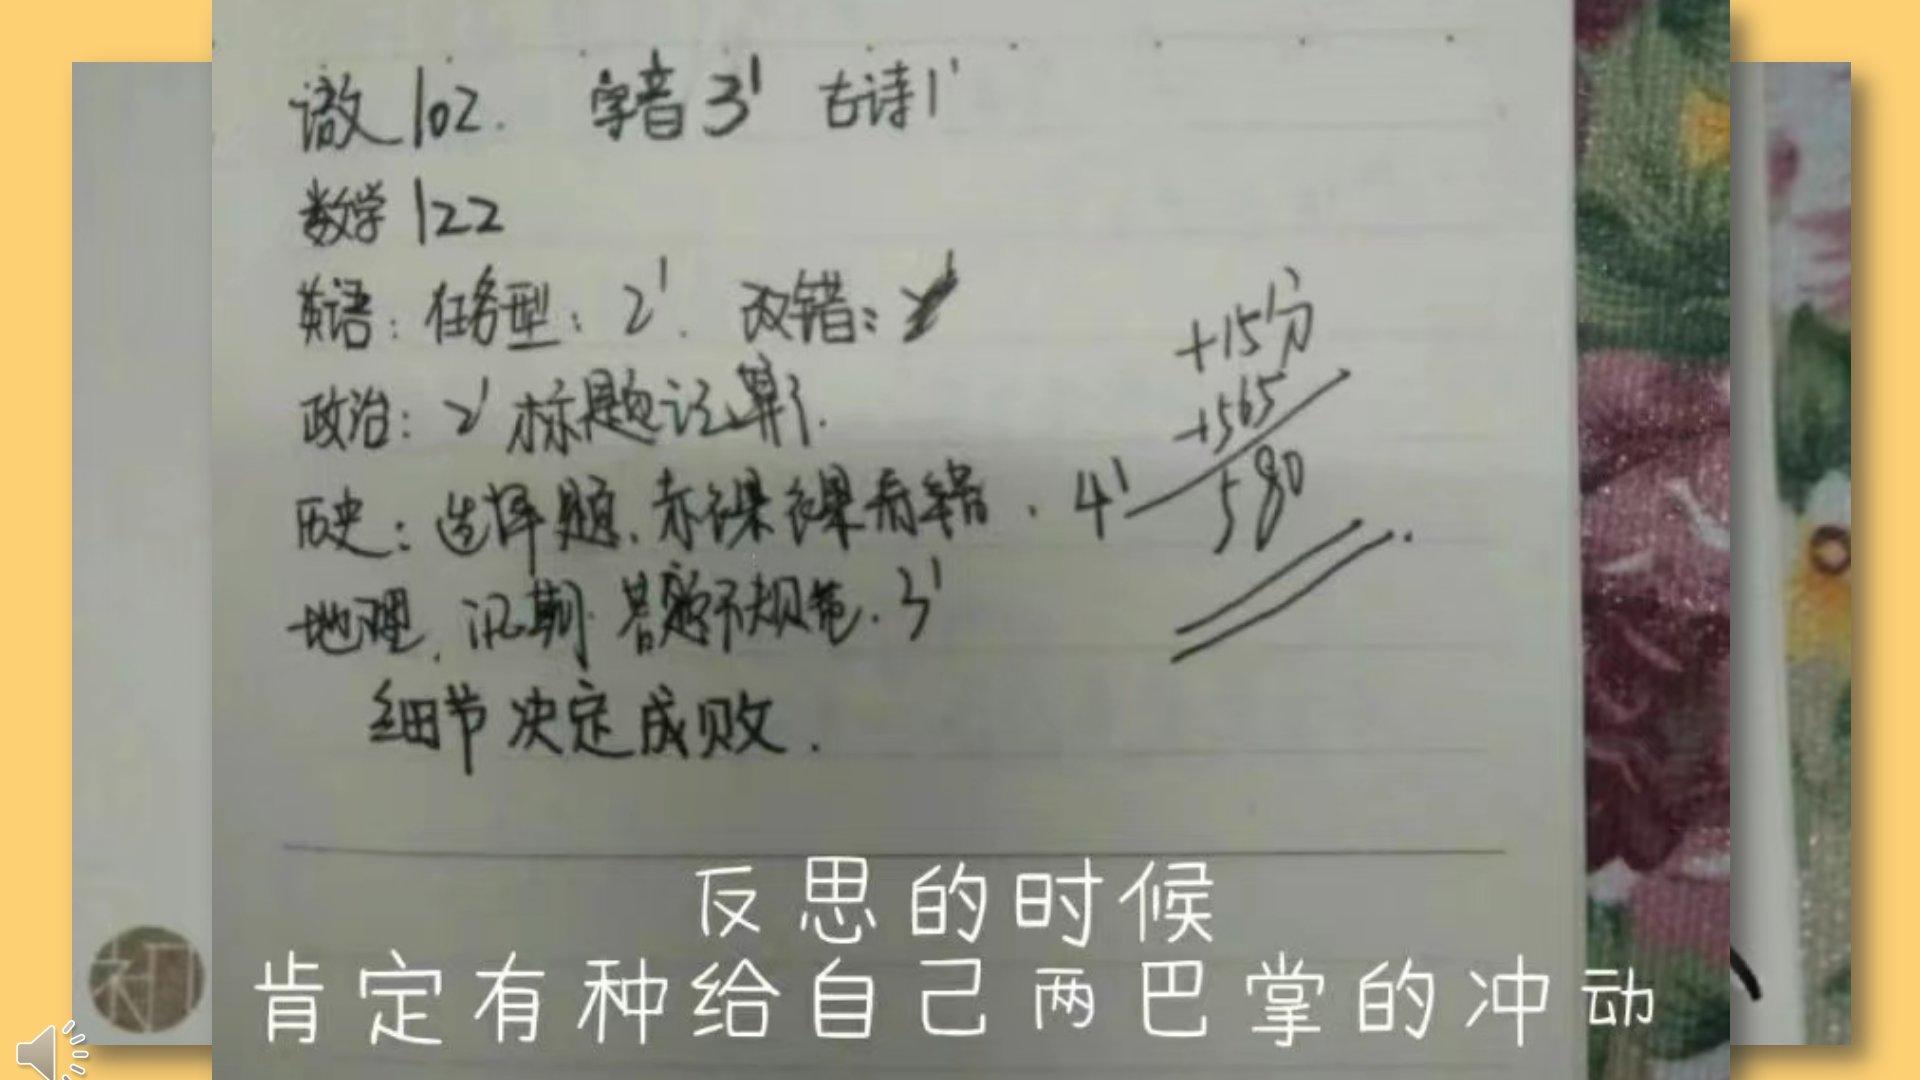 语文102. 字音3' 古诗1'
数学122
英语:任务型:2'. 改错:
政治:2' 标题计算1.
历史:选择题.赤裸裸看错. 4'
地理.汛期 答题不规范.3'
细节决定成败.
+15分
+565
580
反思的时候
肯定有种给自己两巴掌的冲动
初